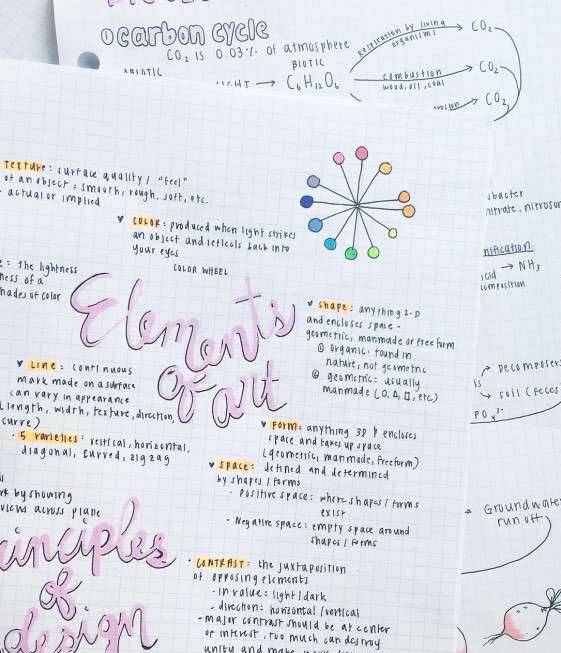 ① carbon cycle
CO₂ is 0.03% of atmosphere
BIOTIC
→ C₆H₁₂O₆
Respiration by living
organisms
CO₂
combustion
wood, oil, coal
CO₂
CO₂
TEXTURE: surface quality / "feel"
of an object: smooth, rough, soft, etc.
- actual or implied
♥ COLOR: produced when light strikes
an object and reflects back into
your eyes
COLOR WHEEL
: the lightness
ness of a
hades of color
Elements
of art
♥ shape: anything 2-D
and encloses space -
geometric, manmade or free form
① organic: found in
nature, not geometric
② geometric: usually
manmade (○, △, □, etc)
♥ LINE: continuous
mark made on a surface
can vary in appearance
(length, width, texture, direction,
curve)
- 5 varieties: vertical, horizontal,
diagonal, curved, zig zag
♥ FORM: anything 3D & encloses
space and takes up space
(geometric, manmade, freeform)
♥ SPACE: defined and determined
by shapes / forms
- positive space: where shapes / forms
exist
- Negative space: empty space around
shapes / forms
by showing
views across plane
inciples
of
design
• CONTRAST: the juxtaposition
of opposing elements
- in value: light / dark
- direction: horizontal / vertical
- major contrast should be at center
of interest, too much can destroy
unity and make
obacter
nitrate, nitrosum
nification
cid → NH₃
composition
Decomposers
soil (feces)
PO₄³⁻
Groundwater
run off